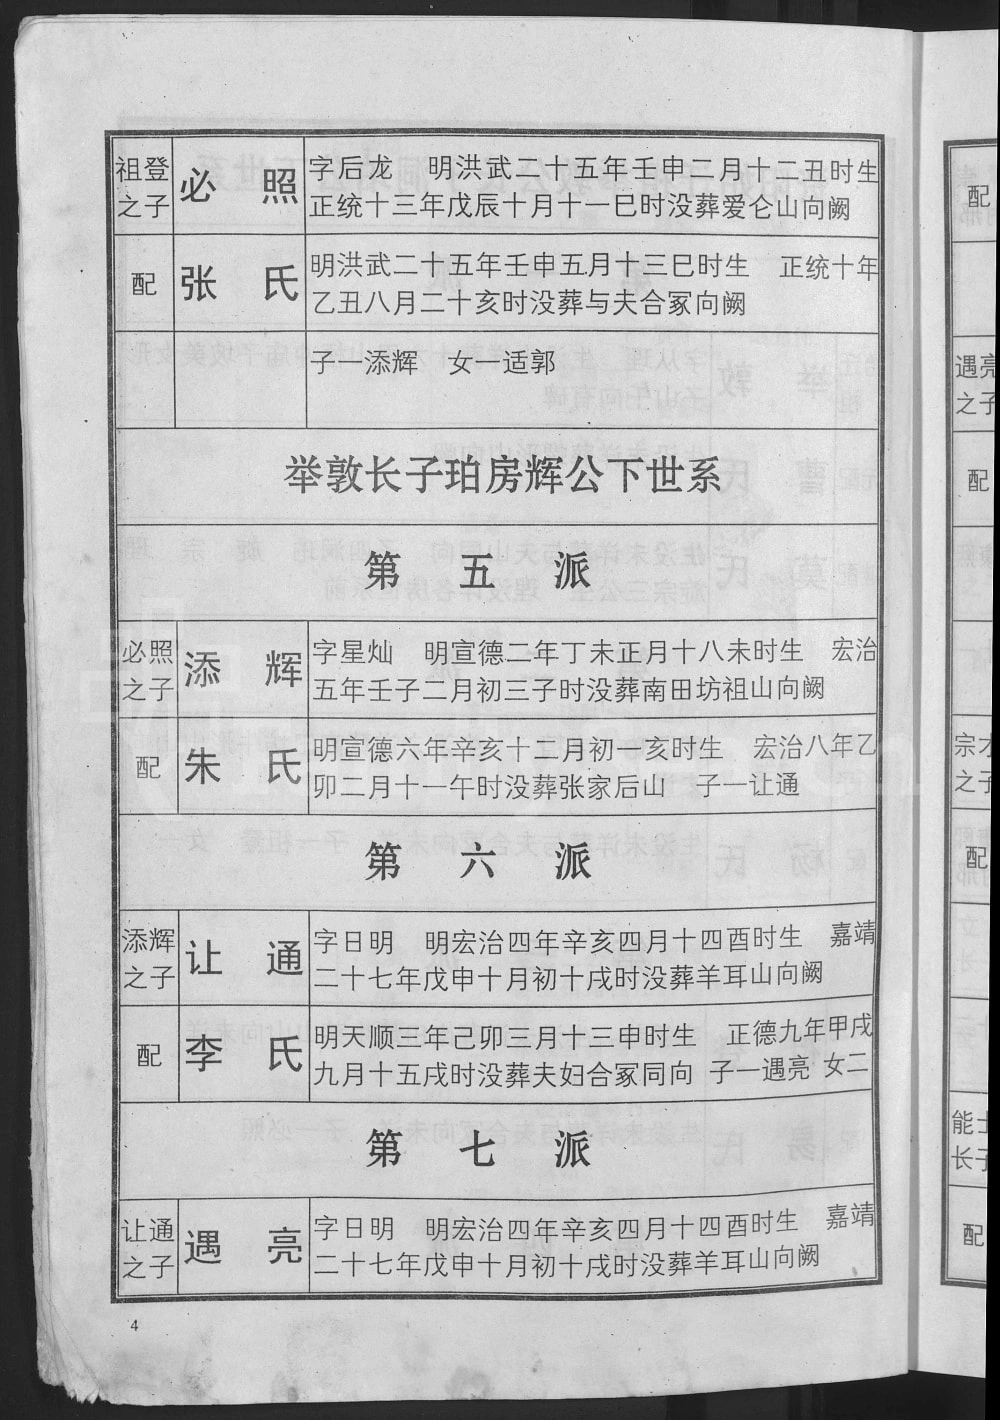 祖登
之子
必 照
字后龙 明洪武二十五年壬申二月十二丑时生
正统十三年戊辰十月十一巳时没葬爱仑山向阙
配
张 氏
明洪武二十五年壬申五月十三巳时生 正统十年
乙丑八月二十亥时没葬与夫合冢向阙
子一添辉 女一适郭
举敦长子珀房辉公下世系
第 五 派
必照
之子
添 辉
字星灿 明宣德二年丁未正月十八未时生 宏治
五年壬子二月初三子时没葬南田坊祖山向阙
配
朱 氏
明宣德六年辛亥十二月初一亥时生 宏治八年乙
卯二月十一午时没葬张家后山 子一让通
第 六 派
添辉
之子
让 通
字日明 明宏治四年辛亥四月十四酉时生 嘉靖
二十七年戊申十月初十戌时没葬羊耳山向阙
配
李 氏
明天顺三年己卯三月十三申时生 正德九年甲戌
九月十五戌时没葬夫妇合冢同向 子一遇亮 女二
第 七 派
让通
之子
遇 亮
字日明 明宏治四年辛亥四月十四酉时生 嘉靖
二十七年戊申十月初十戌时没葬羊耳山向阙
4
配
遇亮
之子
配
宗才
之子
配
能士
长子
配